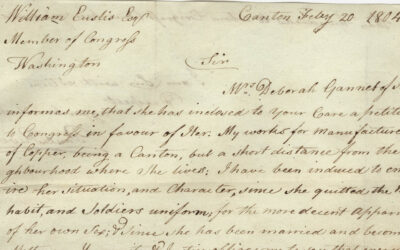 William Eustis Esqr Canton Feby 20 1804
Member of Congress
Washington
Sir
Mrs Deborah Gannet of
informs me, that she has inclosed to your Care a petit
to Congress in favour of Her. My works for Manufacture
of Copper, being a Canton, but a short distance from the
ghbourhood where She lives; I have been induced to en
ire her situation, and Character, since she quitted the
habit, and Soldiers uniform; for the more decent Appar
of her own Sex; & Since she has been married and becom